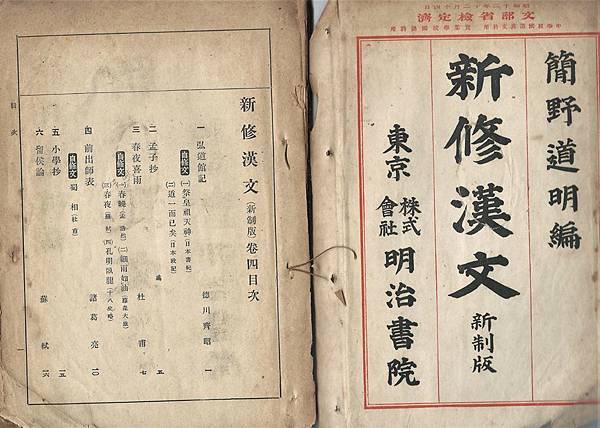 昭和十二年十二月十四日
文部省檢定濟
簡野道明編
新修漢文 新制版
東京 株式會社 明治書院
新修漢文(新制版)卷四目次
一 弘道館記 德川齊昭 一
自修文 (一)祭皇祖天神(日本書紀)
(二)道一而已矣(日本政記)
二 孟子抄 五
三 春夜喜雨 杜甫 七
自修文 (一)春曉(孟浩然) (二)細雨如油
(三)春夜(蘇軾) (四)孔明臥龍(十八史略)
四 前出師表 諸葛亮 一〇
自修文 蜀相(杜甫)
五 小學抄 一五
六 留侯論 蘇軾 一六
目次
一